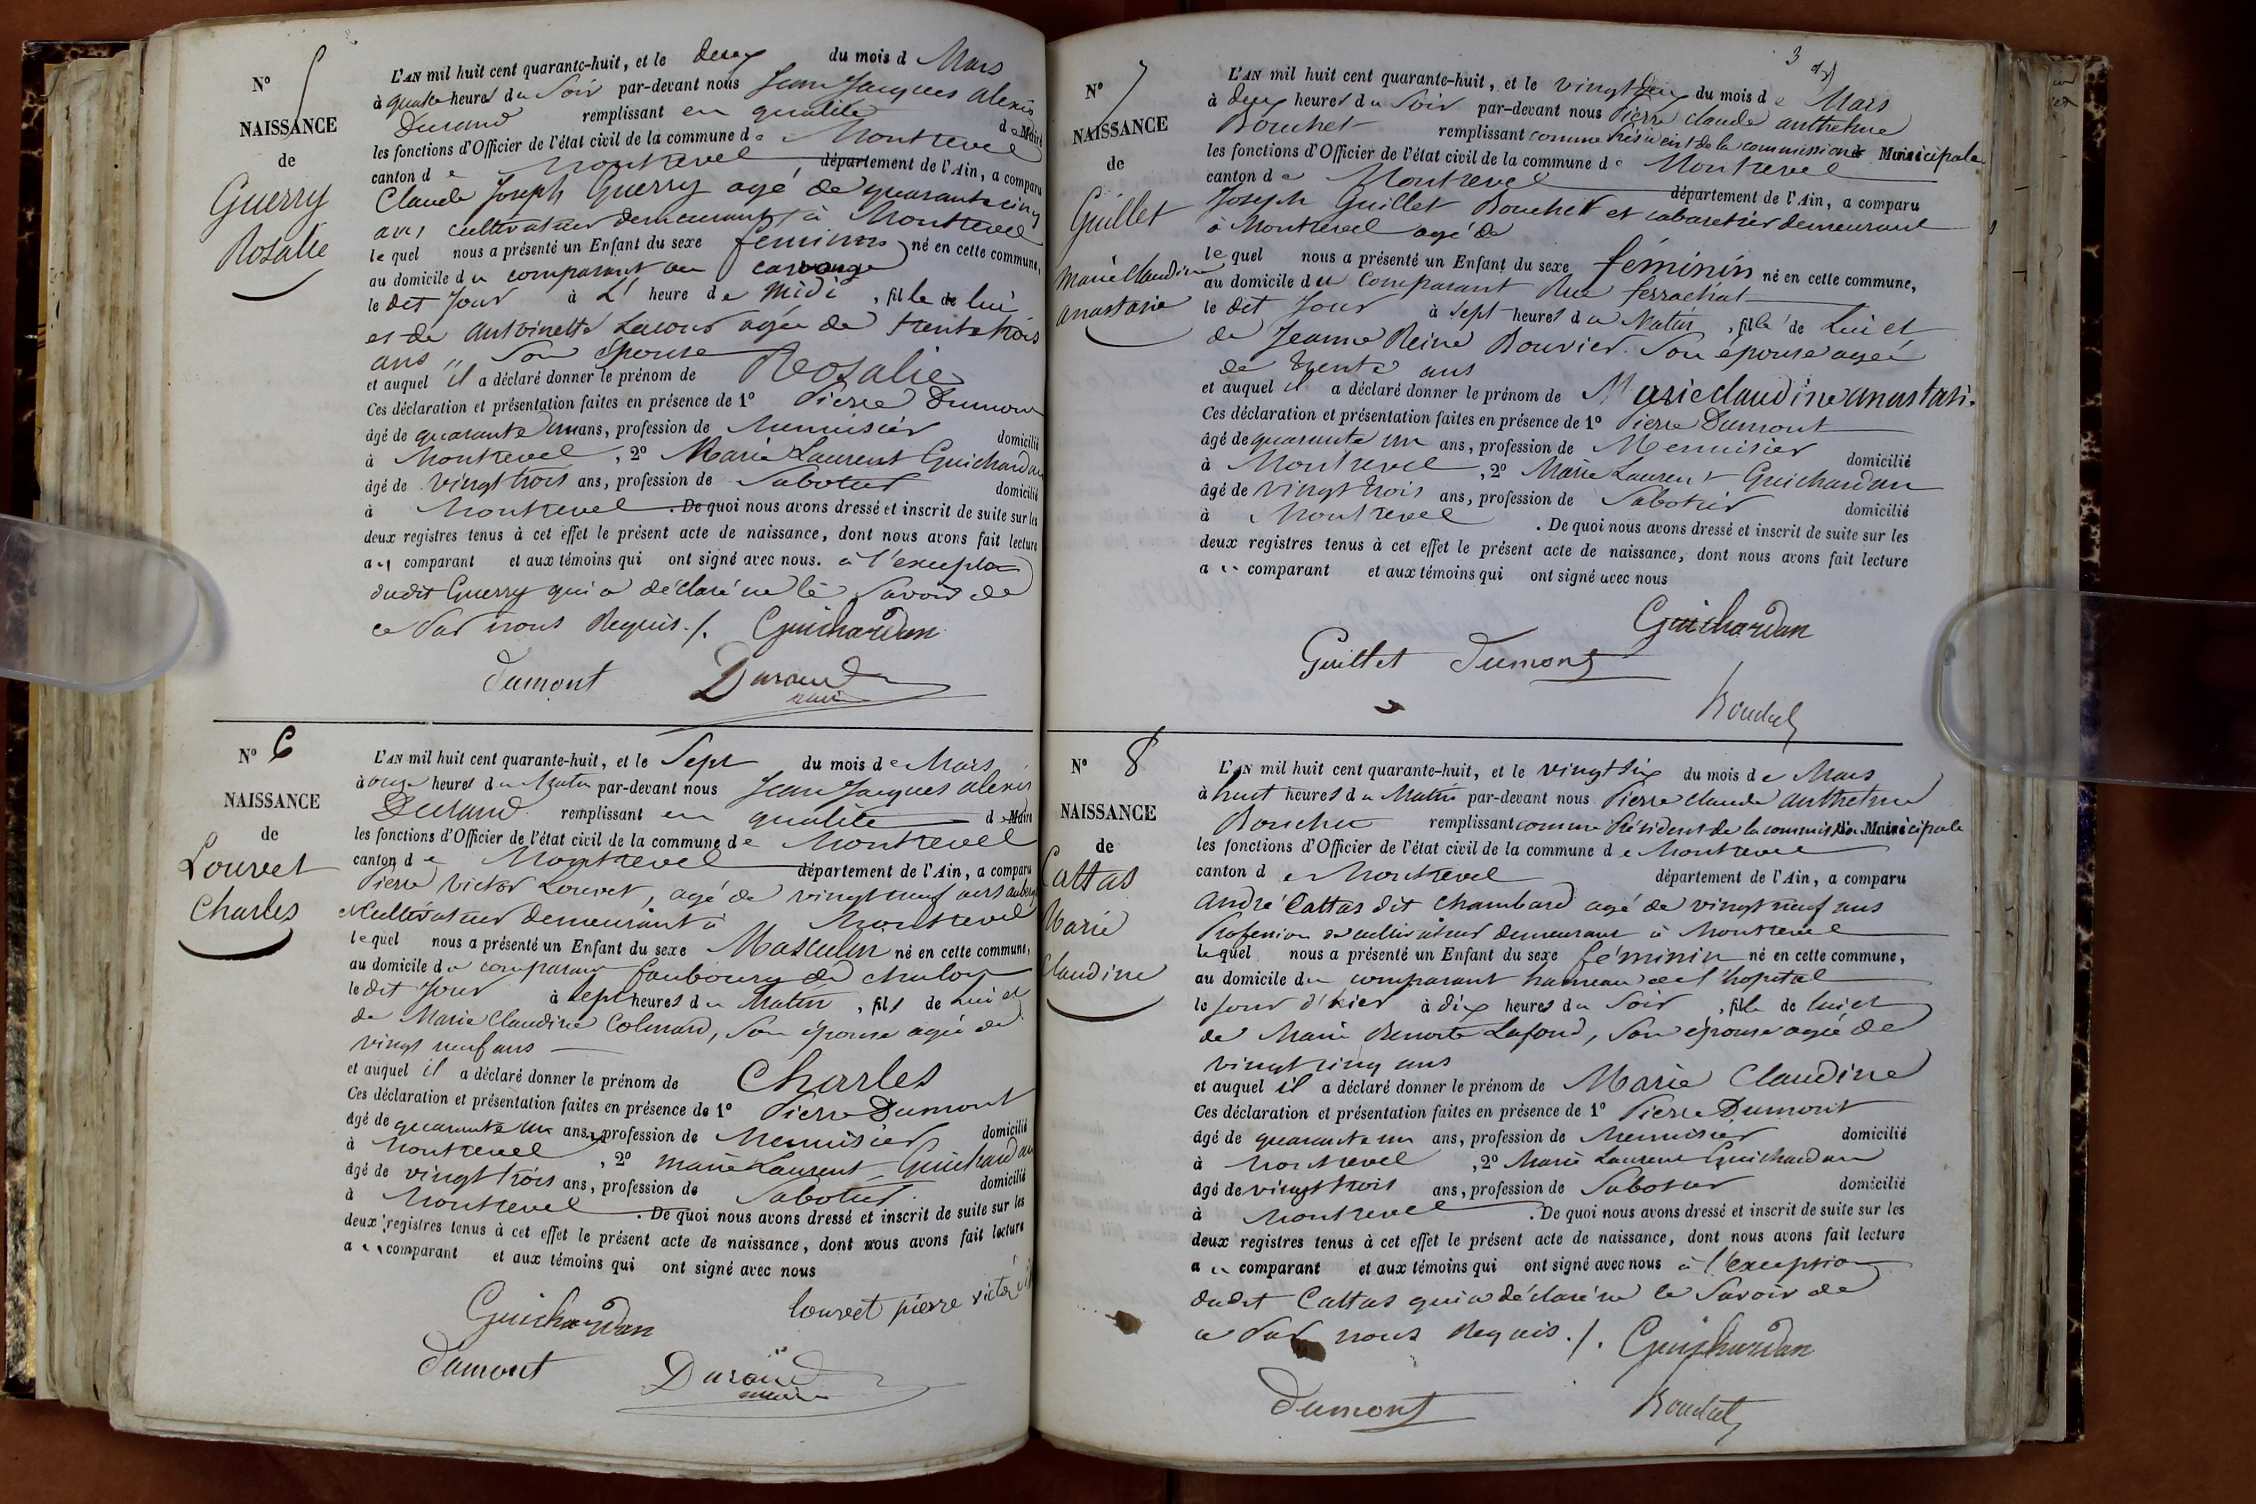 N° 5
NAISSANCE
de
Guerry
Rosalie
L'AN mil huit cent quarante-huit, et le deux du mois d Mars
à quatre heures du Soir par-devant nous Jean Jacques alexis
Durand remplissant en qualité de Maire
les fonctions d'Officier de l'état civil de la commune de Montrevel
canton de Montrevel département de l'Ain, a comparu
Claude Joseph Guerry agé de quarante cinq
ans cultivateur demeurant à Montrevel
lequel nous a présenté un Enfant du sexe féminin né en cette commune,
au domicile du comparant au
le dit Jour à L' heure de midi, fille de lui
et de antoinette Lacour agée de trente trois
ans son épouse
et auquel il a déclaré donner le prénom de Rosalie
Ces déclaration et présentation faites en présence de 1° Pierre Dumont
âgé de quarante un ans, profession de Menuisier domicilié
à Montrevel, 2° Marie Laurent Guichardan
âgé de vingt trois ans, profession de Sabotier domicilié
à Montrevel. De quoi nous avons dressé et inscrit de suite sur les
deux registres tenus à cet effet le présent acte de naissance, dont nous avons fait lecture
au comparant et aux témoins qui ont signé avec nous. à l'exception
dudit Guerry qui a déclaré ne le Savoir de
ce Par nous Requis ./. Guichardan
Dumont Durand
maire
N° 6
NAISSANCE
de
Louvet
Charles
L'AN mil huit cent quarante-huit, et le Sept du mois de Mars
à onze heures du Matin par-devant nous Jean Jacques alexis
Durand remplissant en qualité de Maire
les fonctions d'Officier de l'état civil de la commune de Montrevel
canton de Montrevel département de l'Ain, a comparu
Pierre Victor Louvet, agé de vingt neuf ans
et Cultivateur demeurant à Montrevel
lequel nous a présenté un Enfant du sexe Masculin né en cette commune,
au domicile du comparant faubourg de chalon
le dit Jour à Sept heures du Matin, fils de Lui et
de Marie Claudine Colmard, Son épouse agée de
vingt neuf ans
et auquel il a déclaré donner le prénom de Charles
Ces déclaration et présentation faites en présence de 1° Pierre Dumont
âgé de quarante un ans, profession de Menuisier domicilié
à Montrevel, 2° Marie Laurent Guichardan
âgé de vingt trois ans, profession de Sabotier domicilié
à Montrevel. De quoi nous avons dressé et inscrit de suite sur les
deux registres tenus à cet effet le présent acte de naissance, dont nous avons fait lecture
au comparant et aux témoins qui ont signé avec nous
Guichardan louvet pierre victor
Dumont Durand
maire
3
N° 7
NAISSANCE
de
Guillet
Marie Claudine
anastasie
L'AN mil huit cent quarante-huit, et le vingt deux du mois de Mars
à deux heures du Soir par-devant nous Pierre Claude anthelme
Bouchet remplissant comme Président de la commission Municipale
les fonctions d'Officier de l'état civil de la commune de Montrevel
canton de Montrevel département de l'Ain, a comparu
Joseph Guillet Boucher et cabaretier demeurant
à Montrevel agé de
lequel nous a présenté un Enfant du sexe féminin né en cette commune,
au domicile du comparant Rue ferrachat
le dit Jour à Sept heures du Matin, fille de Lui et
de Jeanne Reine Bouvier Son épouse agée
de trente ans
et auquel il a déclaré donner le prénom de Marie Claudine anastasi.
Ces déclaration et présentation faites en présence de 1° Pierre Dumont
âgé de quarante un ans, profession de Menuisier domicilié
à Montrevel, 2° Marie Laurent Guichardan
âgé de vingt trois ans, profession de Sabotier domicilié
à Montrevel. De quoi nous avons dressé et inscrit de suite sur les
deux registres tenus à cet effet le présent acte de naissance, dont nous avons fait lecture
au comparant et aux témoins qui ont signé avec nous
Guichardan
Guillet Dumont
Bouchet
N° 8
NAISSANCE
de
Cattas
Marie
Claudine
L'AN mil huit cent quarante-huit, et le vingt six du mois de Mars
à huit heures du Matin par-devant nous Pierre Claude anthelme
Bouchet remplissant comme Président de la commission Municipale
les fonctions d'Officier de l'état civil de la commune de Montrevel
canton de Montrevel département de l'Ain, a comparu
André Cattas dit Chambard agé de vingt neuf ans
Profession de cultivateur demeurant à Montrevel
lequel nous a présenté un Enfant du sexe féminin né en cette commune,
au domicile du comparant hameau de l'hopital
le Jour d'hier à dix heures du Soir, fille de lui et
de Marie Benoite Lafond, Son épouse agée de
vingt cinq ans
et auquel il a déclaré donner le prénom de Marie Claudine
Ces déclaration et présentation faites en présence de 1° Pierre Dumont
âgé de quarante un ans, profession de Menuisier domicilié
à Montrevel, 2° Marie Laurent Guichardan
âgé de vingt trois ans, profession de Sabotier domicilié
à Montrevel. De quoi nous avons dressé et inscrit de suite sur les
deux registres tenus à cet effet le présent acte de naissance, dont nous avons fait lecture
au comparant et aux témoins qui ont signé avec nous à l'exception
dudit Cattas qui a déclaré ne le Savoir de
ce Par nous Requis ./. Guichardan
Dumont Bouchet